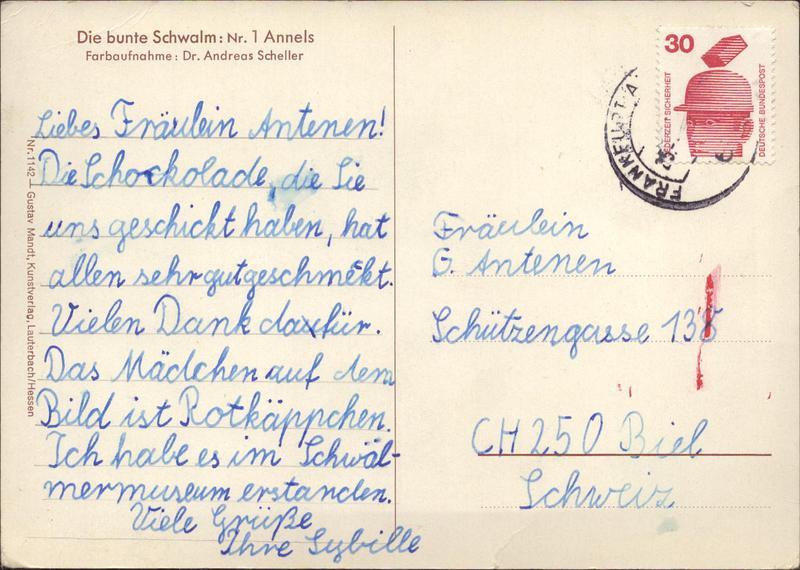 Die bunte Schwalm: Nr. 1 Annels
Farbaufnahme: Dr. Andreas Scheller
Liebes Fräulein Antenen!
Die Schockolade, die Sie
uns geschickt haben, hat
allen sehr gut geschmekt.
Vielen Dank dafür.
Das Mädchen auf dem
Bild ist Rotkäppchen.
Ich habe es im Schwäl-
mermuseum erstanden.
Viele Grüße
Ihre Sybille
Nr. 1142 — Gustav Mandt, Kunstverlag, Lauterbach/Hessen
30
JEDERZEIT SICHERHEIT
DEUTSCHE BUNDESPOST
FRANKFURT
Fräulein
G. Antenen
Schützengasse
CH 250 Biel
Schweiz